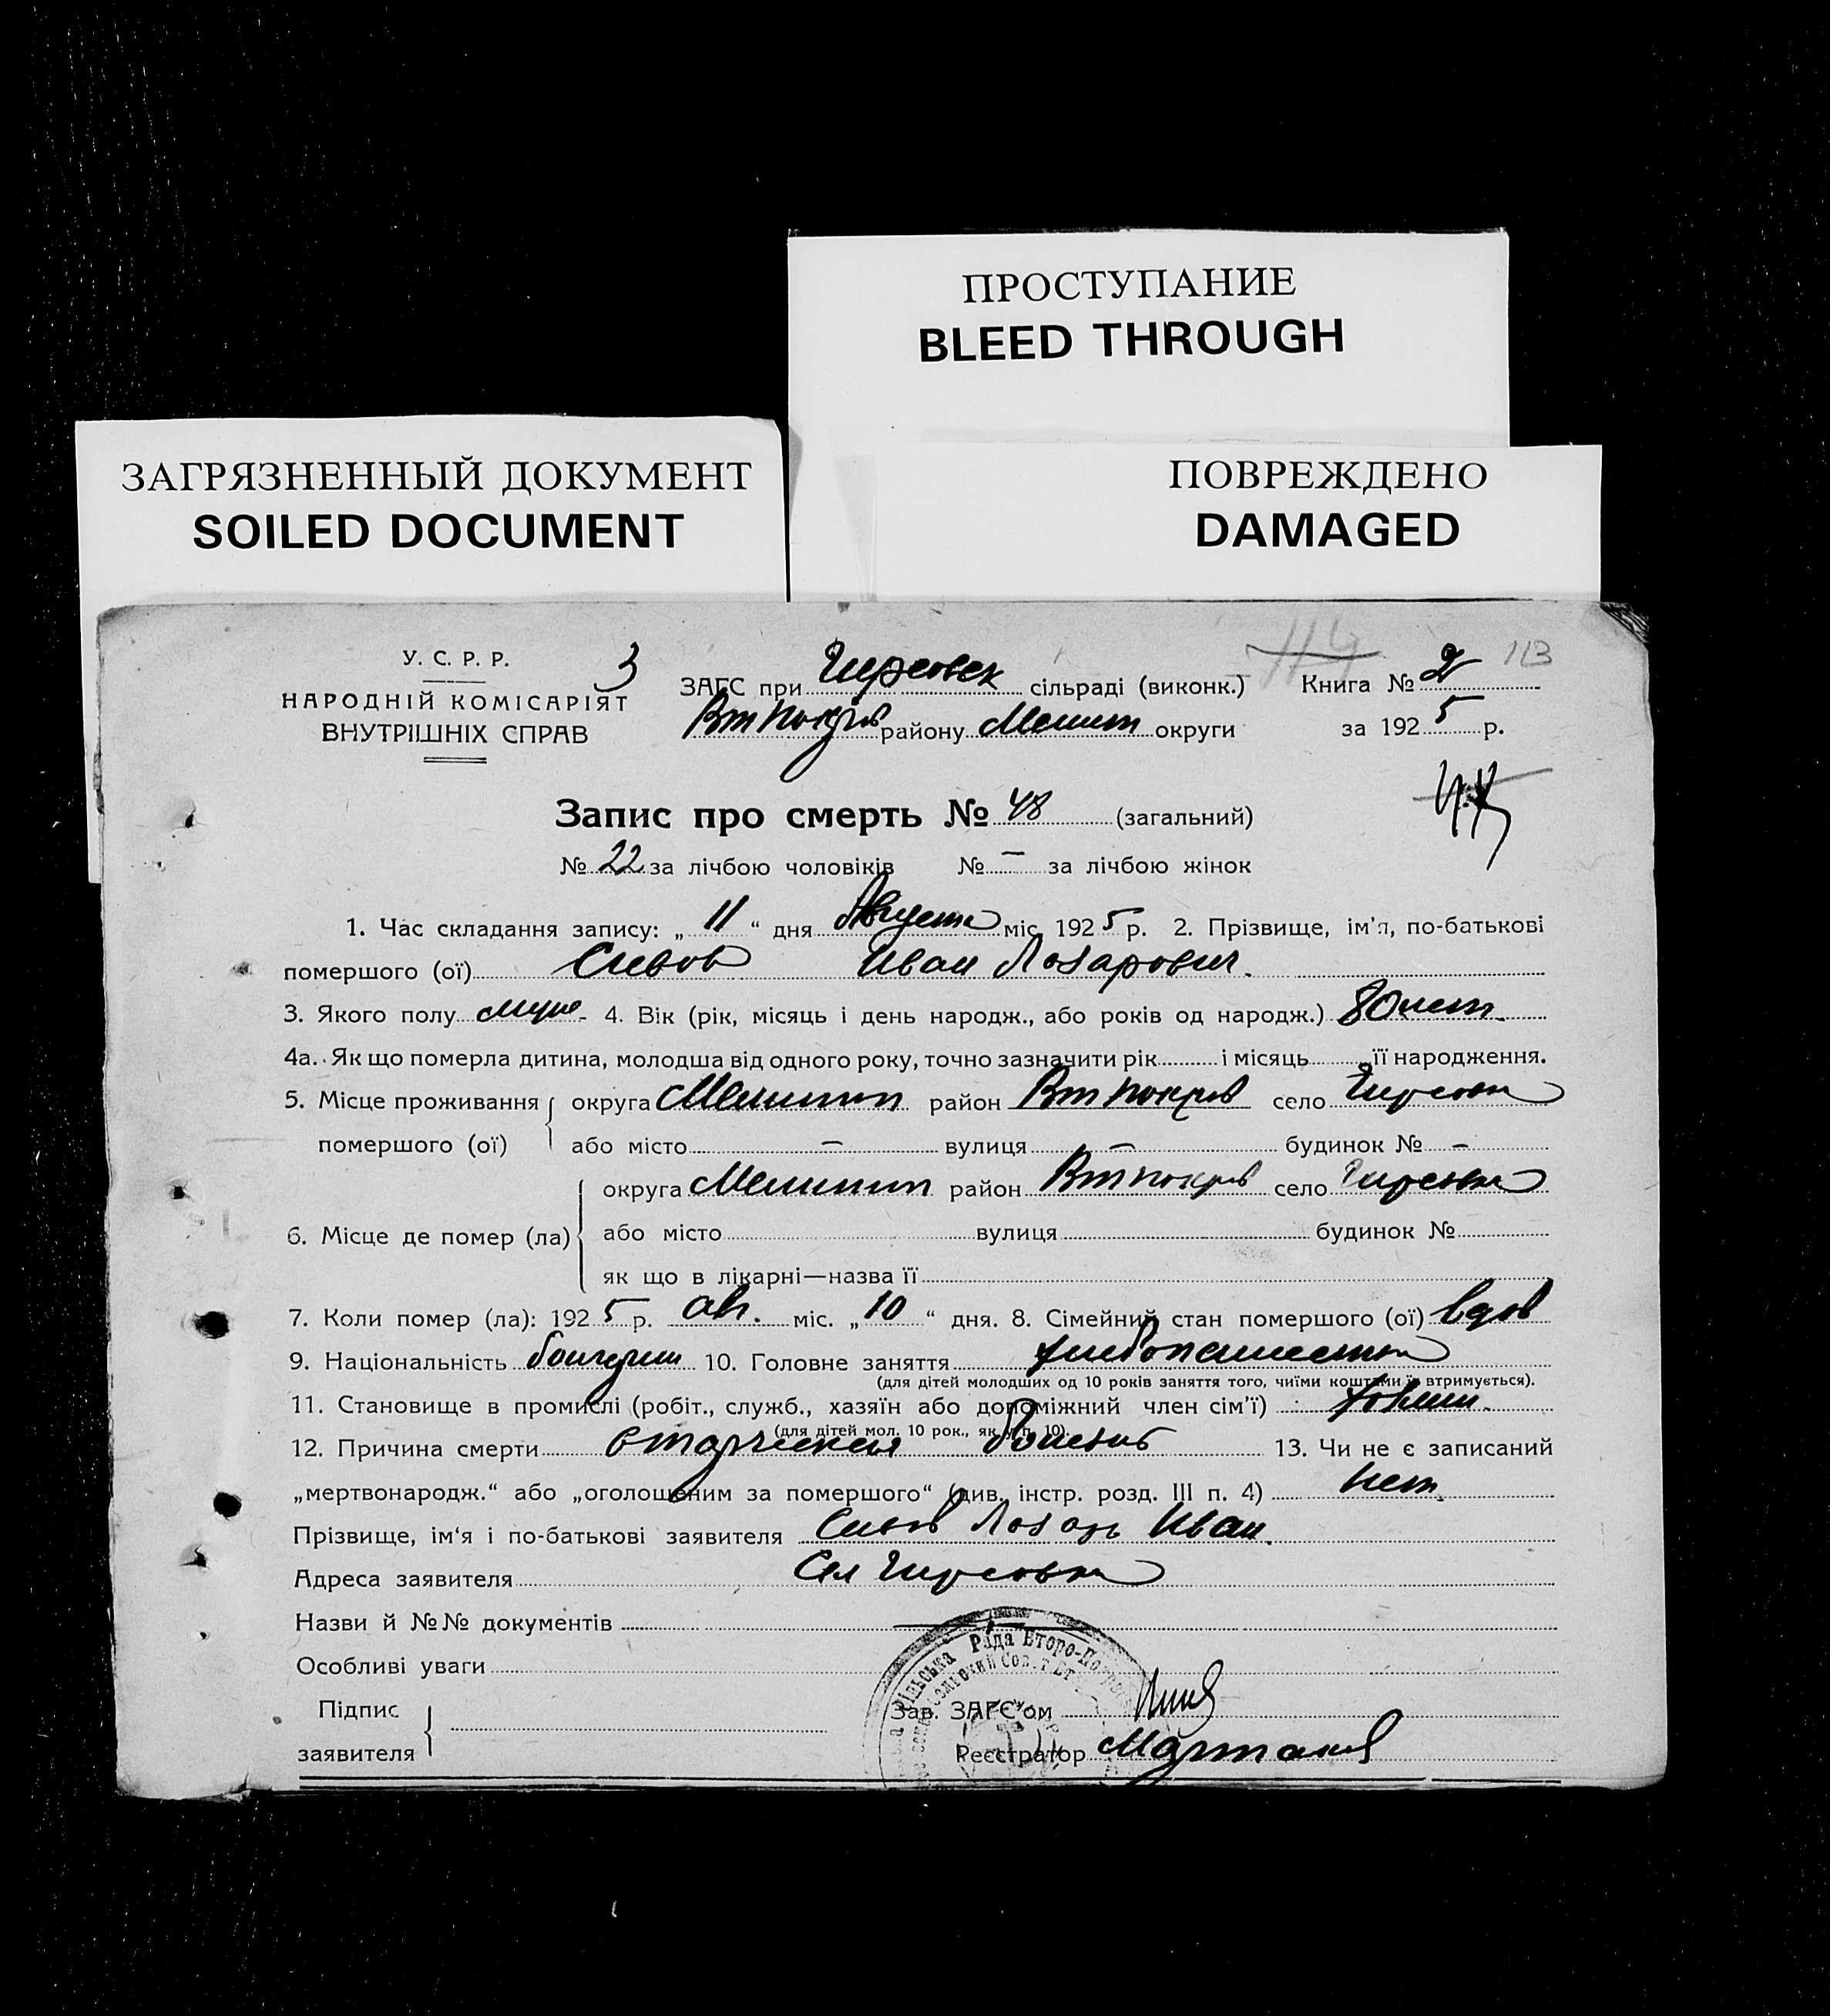 ПРОСТУПАНИЕ
BLEED THROUGH
ЗАГРЯЗНЕННЫЙ ДОКУМЕНТ
SOILED DOCUMENT
ПОВРЕЖДЕНО
DAMAGED
У. С. Р. Р.
НАРОДНІЙ КОМІСАРІЯТ
ВНУТРІШНІХ СПРАВ
3
ЗАГС при Гирсовск сільраді (виконк.)
Вт Покров району Мелит округи
114 113
Книга № 2
за 1925 р.
Запис про смерть № 48 (загальний)
№ 22 за лічбою чоловіків № — за лічбою жінок
1. Час складання запису: „ 11 “ дня Августа міс. 1925 р. 2. Прізвище, ім'я, по-батькові
помершого (ої) Сивов Иван Лазарович.
3. Якого полу муж- 4. Вік (рік, місяць і день народж., або років од народж.) 80 лет.
4а. Як що померла дитина, молодша від одного року, точно зазначити рік і місяць її народження.
5. Місце проживання округа Мелитоп район Вт Покров село Гирсовка
помершого (ої) або місто — вулиця — будинок № —
округа Мелитоп район Вт Покров село Гирсовка
6. Місце де помер (ла) або місто вулиця будинок №
як що в лікарні—назва її
7. Коли помер (ла): 1925 р. авг. міс. „ 10 “ дня. 8. Сімейний стан помершого (ої) вдов
9. Національність болгарин 10. Головне заняття хлебопашество
(для дітей молодших од 10 років заняття того, чиїми коштами їх втримується).
11. Становище в промислі (робіт., служб., хазяїн або допоміжний член сім'ї) хозяин.
(для дітей мол. 10 рок., як у п. 10).
12. Причина смерти старческая болезнь 13. Чи не є записаний
„мертвонародж.“ або „оголошеним за помершого“ (див. інстр. розд. III п. 4) нет.
Прізвище, ім‘я і по-батькові заявителя Сивов Лазарь Иван.
Адреса заявителя Сел Гирсовка
Назви й №№ документів —
Особливі уваги
Підпис
заявителя
Рада Второ-Пок
Зав. ЗАГС'ом
Реєстратор